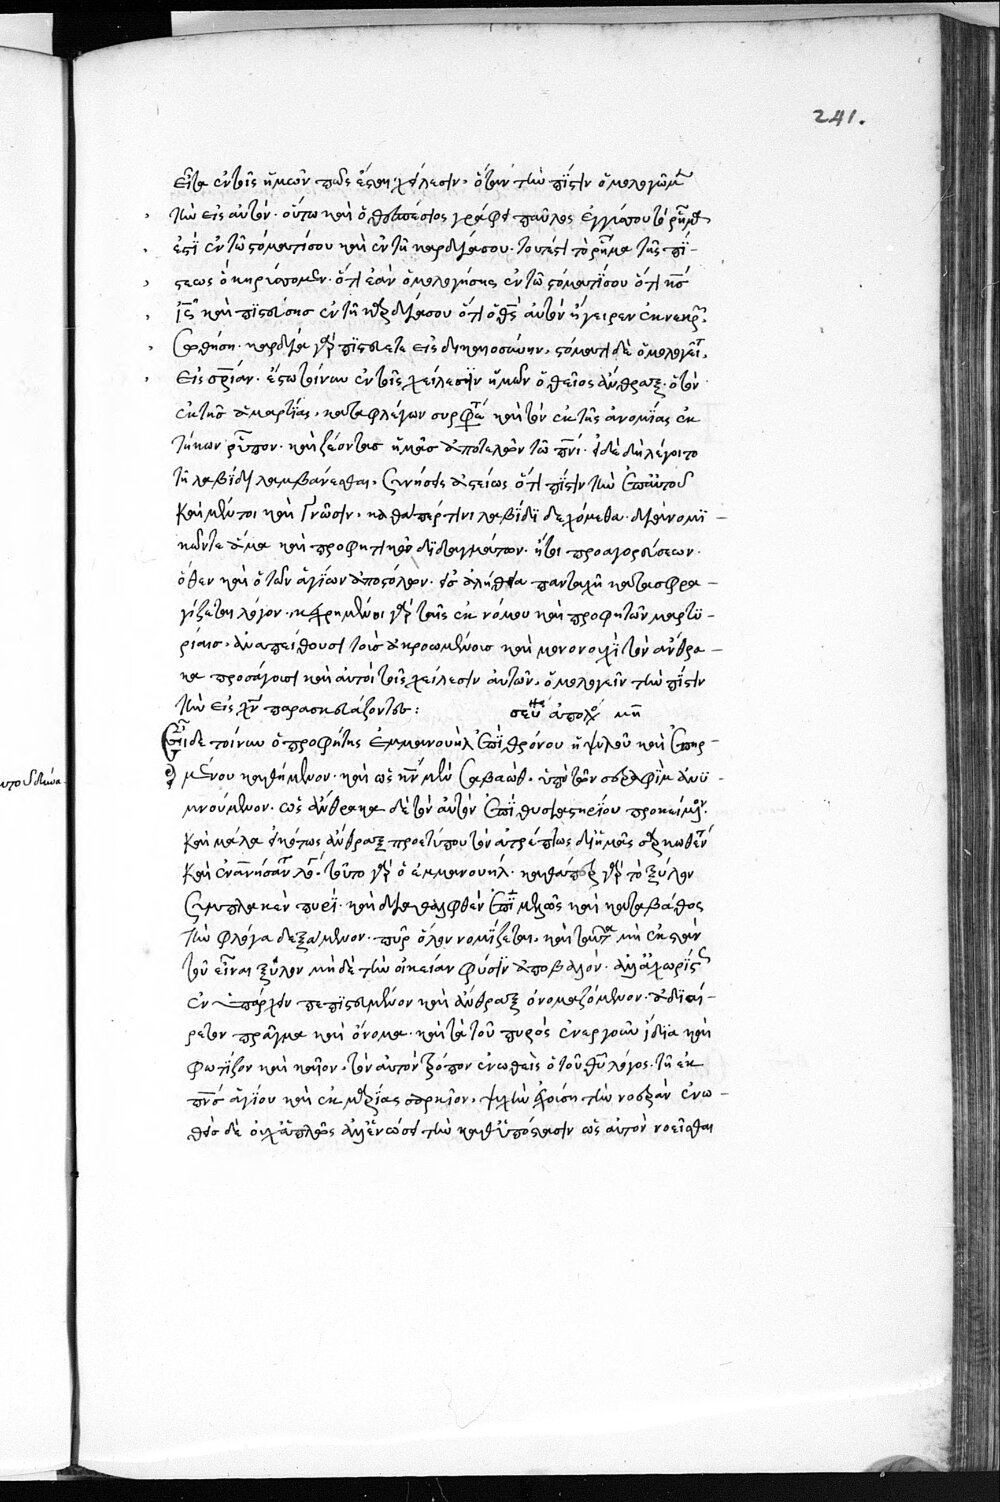 241.
εἶτα ἐν τοῖς ἡμῶν πῶς ἔσται χείλεσιν, ὅταν τὴν πίστιν ὁμολογῶμεν
τὴν εἰς αὐτόν. οὕτω καὶ ὁ θεσπέσιος γράφει παῦλος ἐγγύς σου τὸ ῥῆμά
ἐστι ἐν τῷ στόματί σου καὶ ἐν τῇ καρδίᾳ σου. τουτέστι τὸ ῥῆμα τῆς πί-
στεως ὃ κηρύσσομεν. ὅτι ἐὰν ὁμολογήσῃς ἐν τῷ στόματί σου ὅτι κς
ις καὶ πιστεύσῃς ἐν τῇ καρδίᾳ σου ὅτι ὁ θς αὐτὸν ἤγειρεν ἐκ νεκρ
σωθήσῃ. καρδίᾳ γὰρ πιστεύεται εἰς δικαιοσύνην, στόματι δὲ ὁμολογεῖτ
εἰς σριαν. ἔστω τοίνυν ἐν τοῖς χείλεσιν ἡμῶν ὁ θεῖος ἄνθραξ. ὁ τὸν
ἐκ τῆς ἁμαρτίας, καταφλέγων συρφετὸ καὶ τὸν ἐκ τῆς ἀνομίας ἐκ
τήκων ῥύπον. καὶ ζέοντας ἡμᾶς ἀποτελῶν τῷ πνι. εἰ δὲ δὴ λέγοιτο
τῇ λαβίδι λαμβάνεσθαι, συνήσεις ἀστείως ὅτι πίστιν τὴν ἐπ αὐτῷ
καὶ μέντοι καὶ γνῶσιν, καθάπέρ τινι λαβίδι δεχόμεθα. διὰ νομι-
κῶν τε ἅμα καὶ προφητικῶν διδαγμάτων. ἤτοι προαγορεύσεων.
ὅθεν καὶ ὁ τῶν ἁγίων ἀποστόλων. εἰς ἀλήθεια πανταχῆ κατασφρα-
γίζεται λόγον. κεχρημένοι γὰρ ταῖς ἐκ νόμου καὶ προφητῶν μαρτυ-
ρίαις, ἀναπείθουσι τοὺς ἀκροωμένους καὶ μονονουχὶ τὸν ἄνθρα-
κα προσάγουσι καὶ αὐτοὶ τοῖς χείλεσιν αὐτῶν, ὁμολογεῖν τὴν πίστιν
τὴν εἰς χν παρασκευάζοντες:
σευή ἀπολ μη
Εἶδε τοίνυν ὁ προφήτης ἐμμανουὴλ ἐπὶ θρόνου ὑψηλοῦ καὶ ἐπηρ-
μένου καθήμενον. καὶ ὡς κν μὲν σαβαὼθ, ὑπὸ τῶν σεραφὶμ ἀνυ-
μνούμενον. ὡς ἄνθρακα δὲ τὸν αὐτὸν ἐπὶ θυσιαστηρίου προκείμενον.
καὶ μάλα εἰκότως ἄνθραξ προετύπου τὸν ἀτρέπτως δι ἡμᾶς σαρκωθέντ
καὶ ἐνανήσαντ λόγ. τοῦτο γὰρ ὁ ἐμμανουήλ. καθάπερ γὰρ τὸ ξύλον
συμπλακὲν πυρί. καὶ διαλειφθὲν ἐπιμελῶς καὶ κατὰ βάθος
τὴν φλόγα δεξάμενον. πῦρ ὅλον νομίζεται, καὶ ταῦτα μὴ ἐκστὰν
τοῦ εἶναι ξύλον μηδὲ τὴν οἰκείαν φύσιν ἀποβαλόν. ἀλλ ἀχωρίστ
ἐν ὑπάρχειν πεπιστευμένον καὶ ἄνθραξ ὀνομαζόμενον. ἀδιαί-
ρετον πρᾶγμα καὶ ὄνομα. καὶ τὰ τοῦ πυρὸς ἐνεργοῦν ἴδια καὶ
φωτίζον καὶ καῖον. τὸν αὐτὸν τρόπον ἑνωθεὶς ὁ τοῦ θυ λόγος. τῇ ἐκ
πνς ἁγίου καὶ ἐκ μαρίας σαρκίον, ψυχὴν ἐχούσῃ τὴν νοερὰν ἑνω-
θεὶς δὲ οὐχ ἁπλῶς ἀλλ ἑνώσει τὴν καθ ὑπόστασιν ὡς αὐτὸν νοεῖσθαι